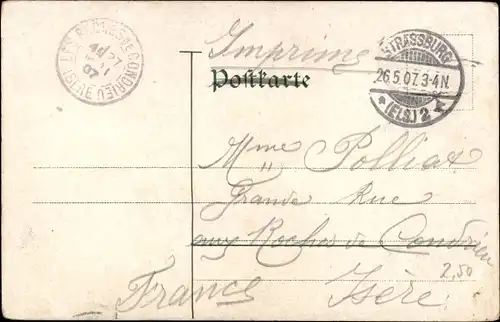 LES ROCHES DE CONDRIEU
ISÈRE
27
07
Imprimé
STRASSBURG
26.5.07.3-4N.
* (ELS.) 2 *
Postkarte
Mme Polliat
Grande Rue
aux Roches de Condrieu
2,50
France Isère